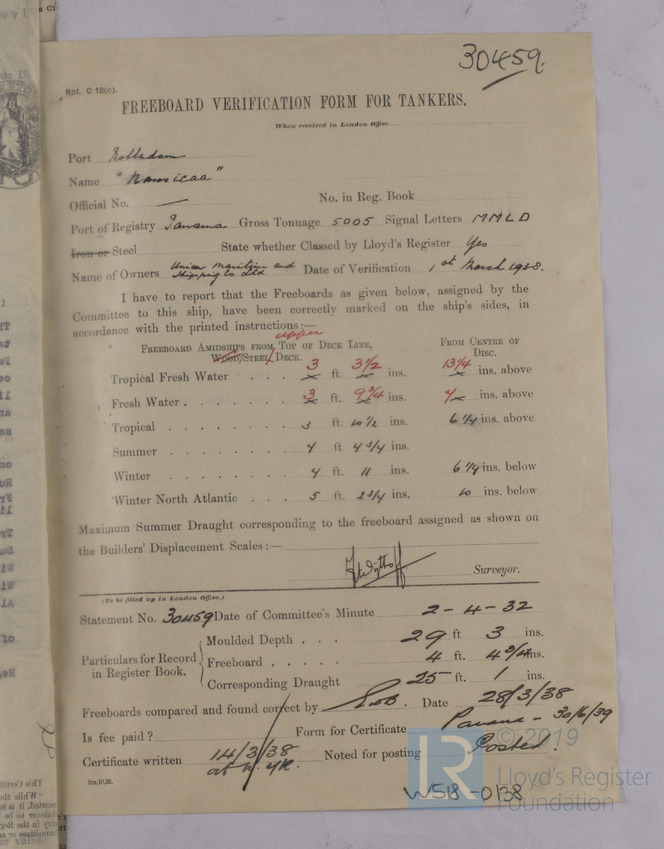 30459
Rpt. C 12(c).
FREEBOARD VERIFICATION FORM FOR TANKERS.
When received in London Office
Port Rotterdam
Name "Nausicaa"
Official No. — No. in Reg. Book
Port of Registry Panama Gross Tonnage 5005 Signal Letters MMLD
Iron or Steel State whether Classed by Lloyd's Register Yes
Name of Owners Union Maritime and Shipping Co Ltd Date of Verification 1st March 1938.
I have to report that the Freeboards as given below, assigned by the
Committee to this ship, have been correctly marked on the ship's sides, in
accordance with the printed instructions:—
upper
FREEBOARD AMIDSHIPS FROM TOP OF DECK LINE, WOOD/STEEL DECK. FROM CENTRE OF DISC.
Tropical Fresh Water . . . 3 ft. 3 1/2 ins. 13 1/4 ins. above
Fresh Water . . . . . . . 3 ft. 9 3/4 ins. 7 ins. above
Tropical . . . . . . . . 3 ft. 10 1/2 ins. 6 1/4 ins. above
Summer . . . . . . . . 4 ft 4 3/4 ins.
Winter . . . . . . . . 4 ft. 11 ins. 6 1/4 ins. below
Winter North Atlantic . . . 5 ft. 2 3/4 ins. 10 ins. below
Maximum Summer Draught corresponding to the freeboard assigned as shown on
the Builders' Displacement Scales:—
Surveyor.
(To be filled up in London Office.)
Statement No. 30459 Date of Committee's Minute 2-4-32
Particulars for Record in Register Book.
Moulded Depth . . . 29 ft 3 ins.
Freeboard . . . . . 4 ft. 4 3/4 ins.
Corresponding Draught 25 ft. 1 ins.
Freeboards compared and found correct by Date 28/3/38
Is fee paid? Form for Certificate Panama - 30/6/39
Certificate written 14/3/38 Noted for posting Posted.
at N. YK.
2m,10,32.
© 2019
LR Lloyd's Register
Foundation
W518-0138